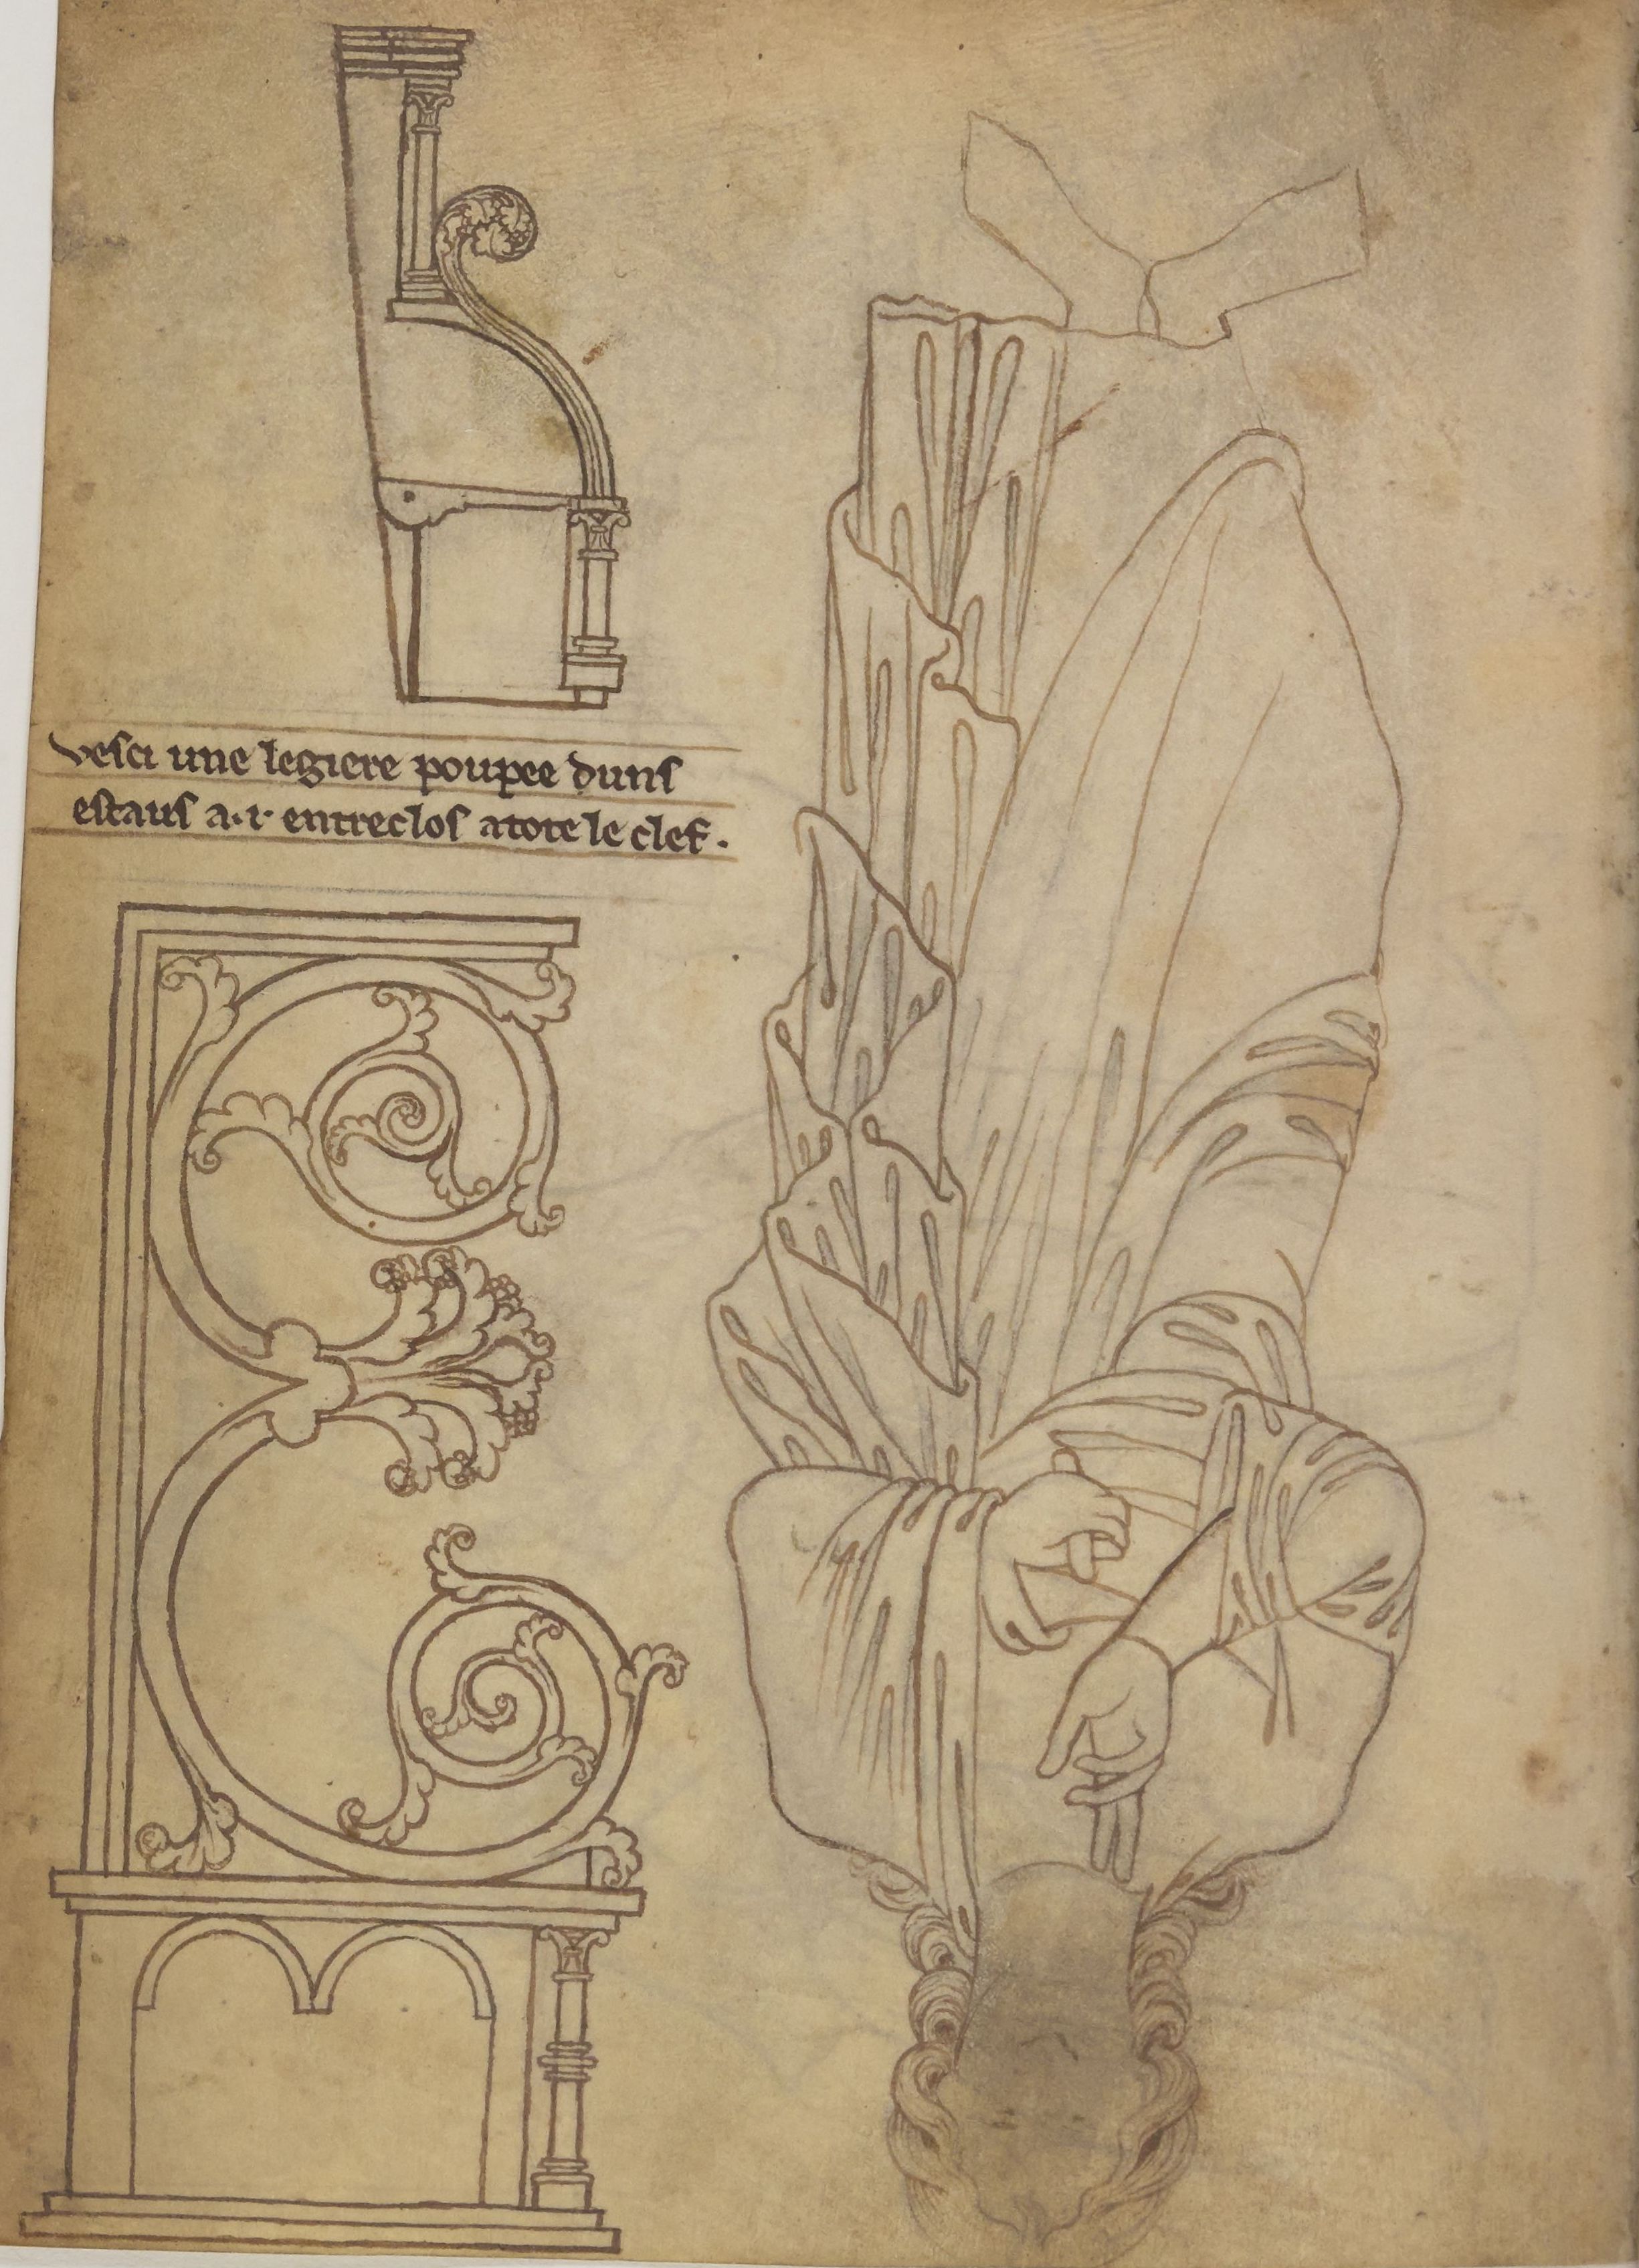 vesci une legiere poupee duns
estaus a·i· entreclos atote le clef.